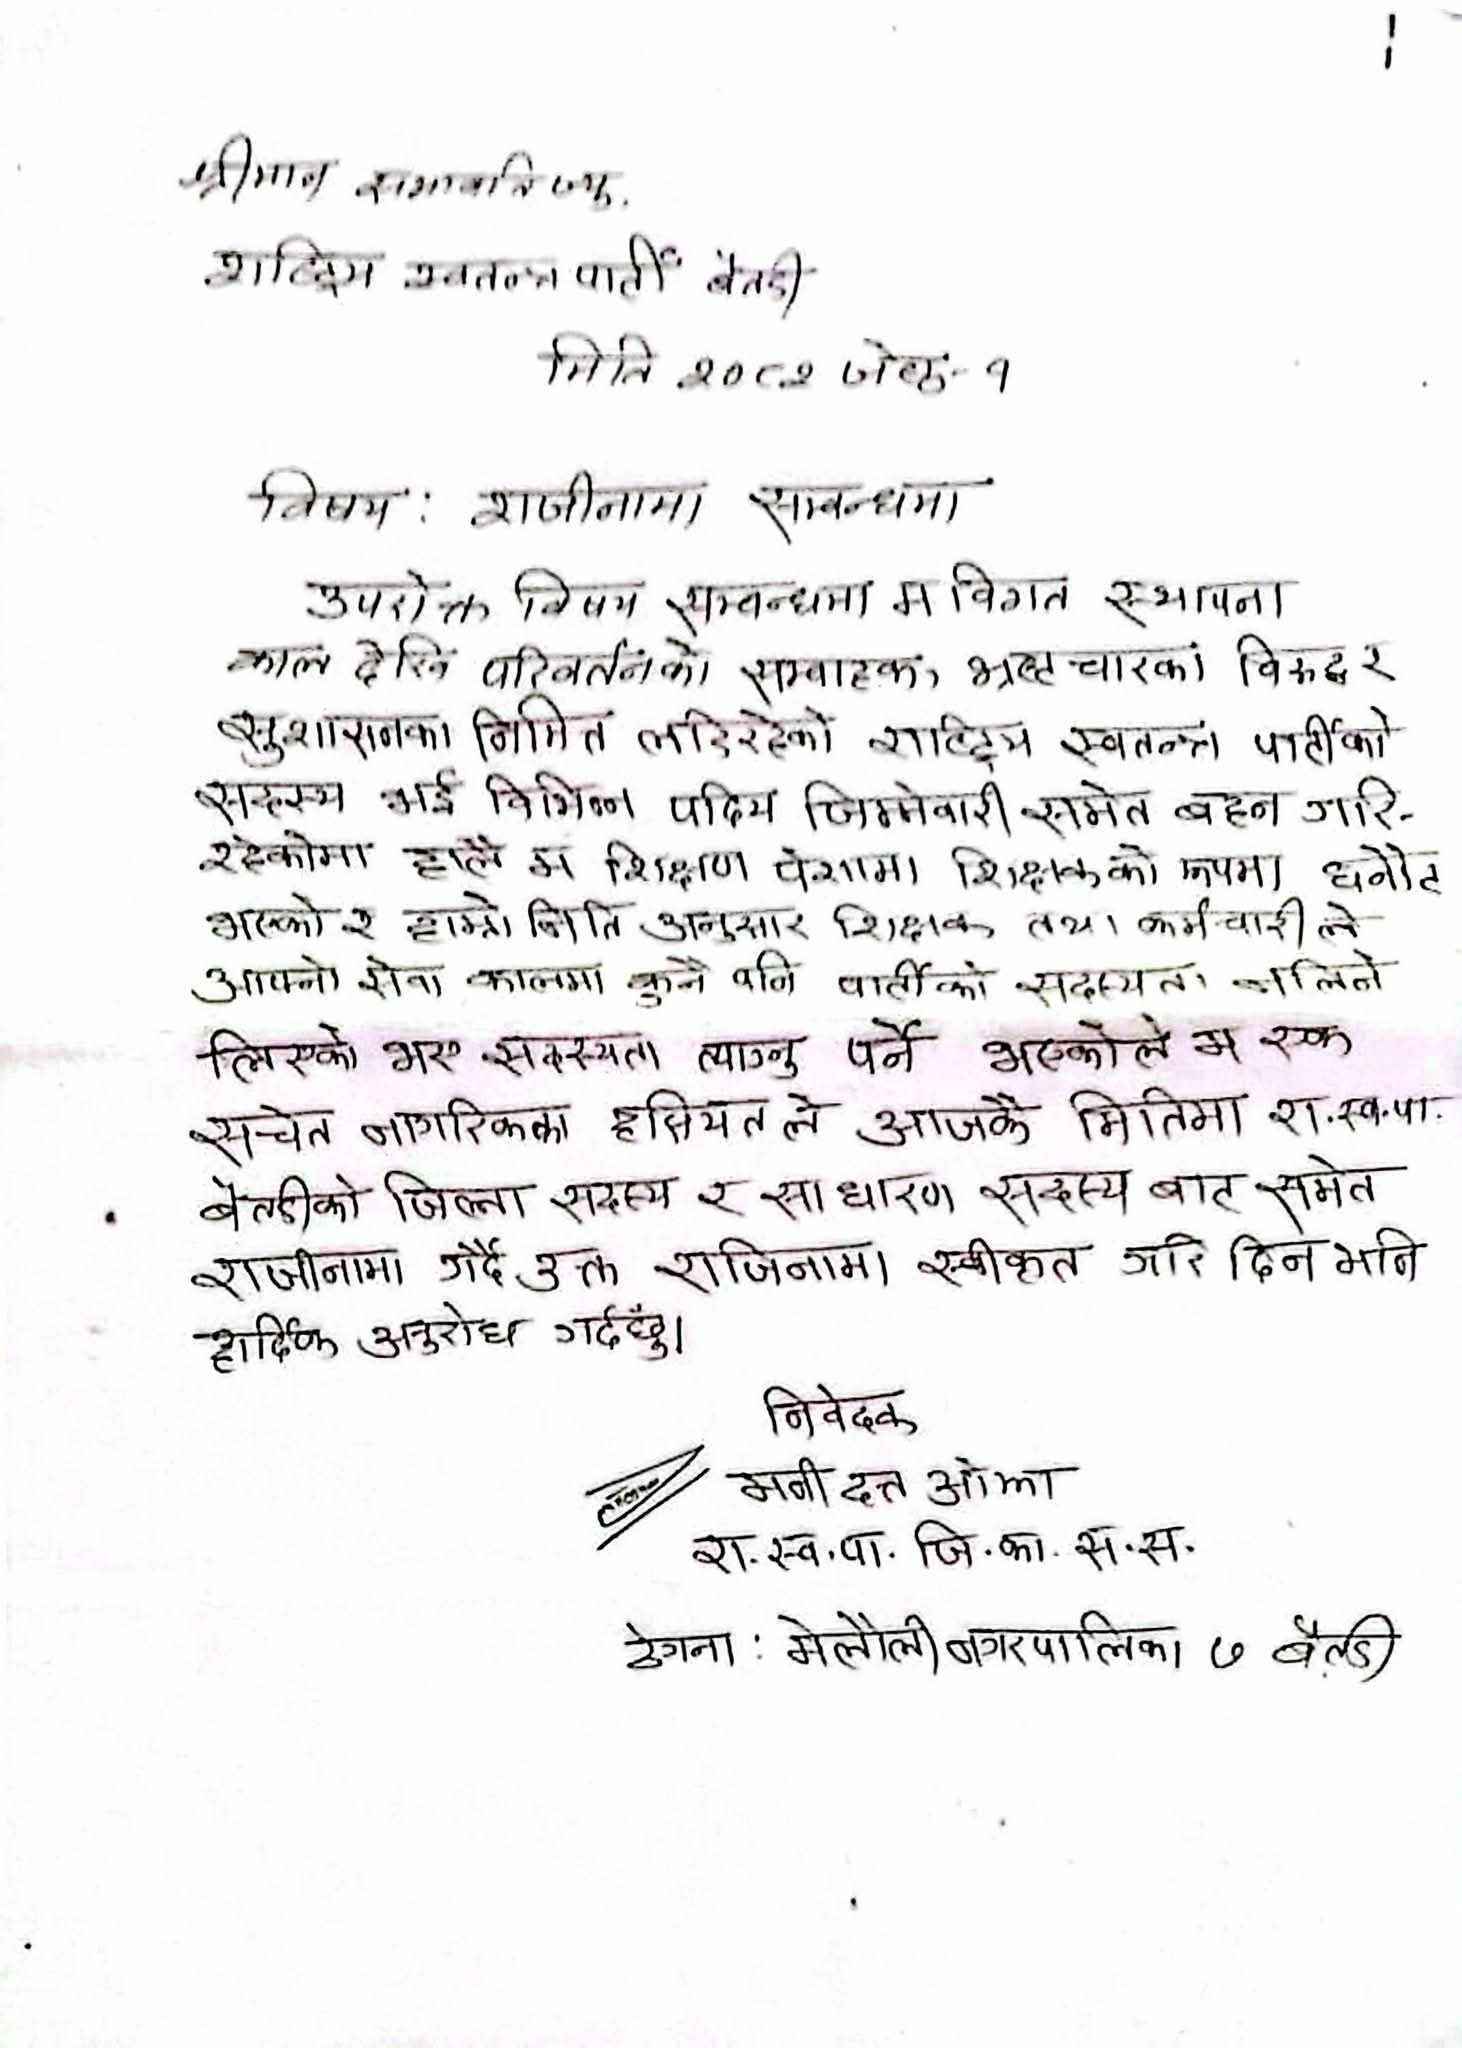 श्रीमान सभापति ज्यू.
राष्ट्रिय स्वतन्त्र पार्टी बैतडी
मिति २०८२ जेष्ठ-१
विषय: राजीनामा सम्वन्धमा
उपरोक्त विषय सम्वन्धमा म विगत स्थापना
काल देखि परिवर्तनको सम्वाहक, भ्रष्टचारका विरुद्ध र
सुशासनका निमित्त लडिरहेको राष्ट्रिय स्वतन्त्र पार्टीको
सदस्य भई विभिन्न पदिय जिम्मेवारी समेत बहन गरि-
रहेकोमा हालै म शिक्षण पेशामा शिक्षकको रूपमा छनौट
भएको र हाम्रो निति अनुसार शिक्षक तथा कर्मचारी ले
आफ्नो सेवा कालमा कुनै पनि पार्टीको सदस्यता नलिने
लिएको भए सदस्यता त्याग्नु पर्ने भएकोले म एक
सचेत नागरिकका हसियतले आजकै मितिमा रा.स्व.पा.
बैतडीको जिल्ला सदस्य र साधारण सदस्य बाट समेत
राजीनामा गर्दै उक्त राजिनामा स्वीकृत गरि दिन भनि
हार्दिक अनुरोध गर्दछु।
निवेदक
मनी दत्त ओझा
रा.स्व.पा. जि.का. स.स.
ठेगना: मेलौली नगरपालिका ७ बैतडी